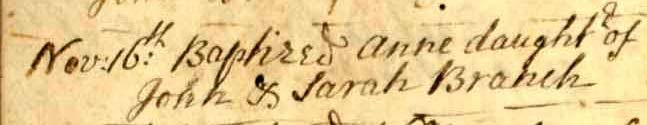 Nov: 16th: Baptized Anne daughtr of
John & Sarah Branch